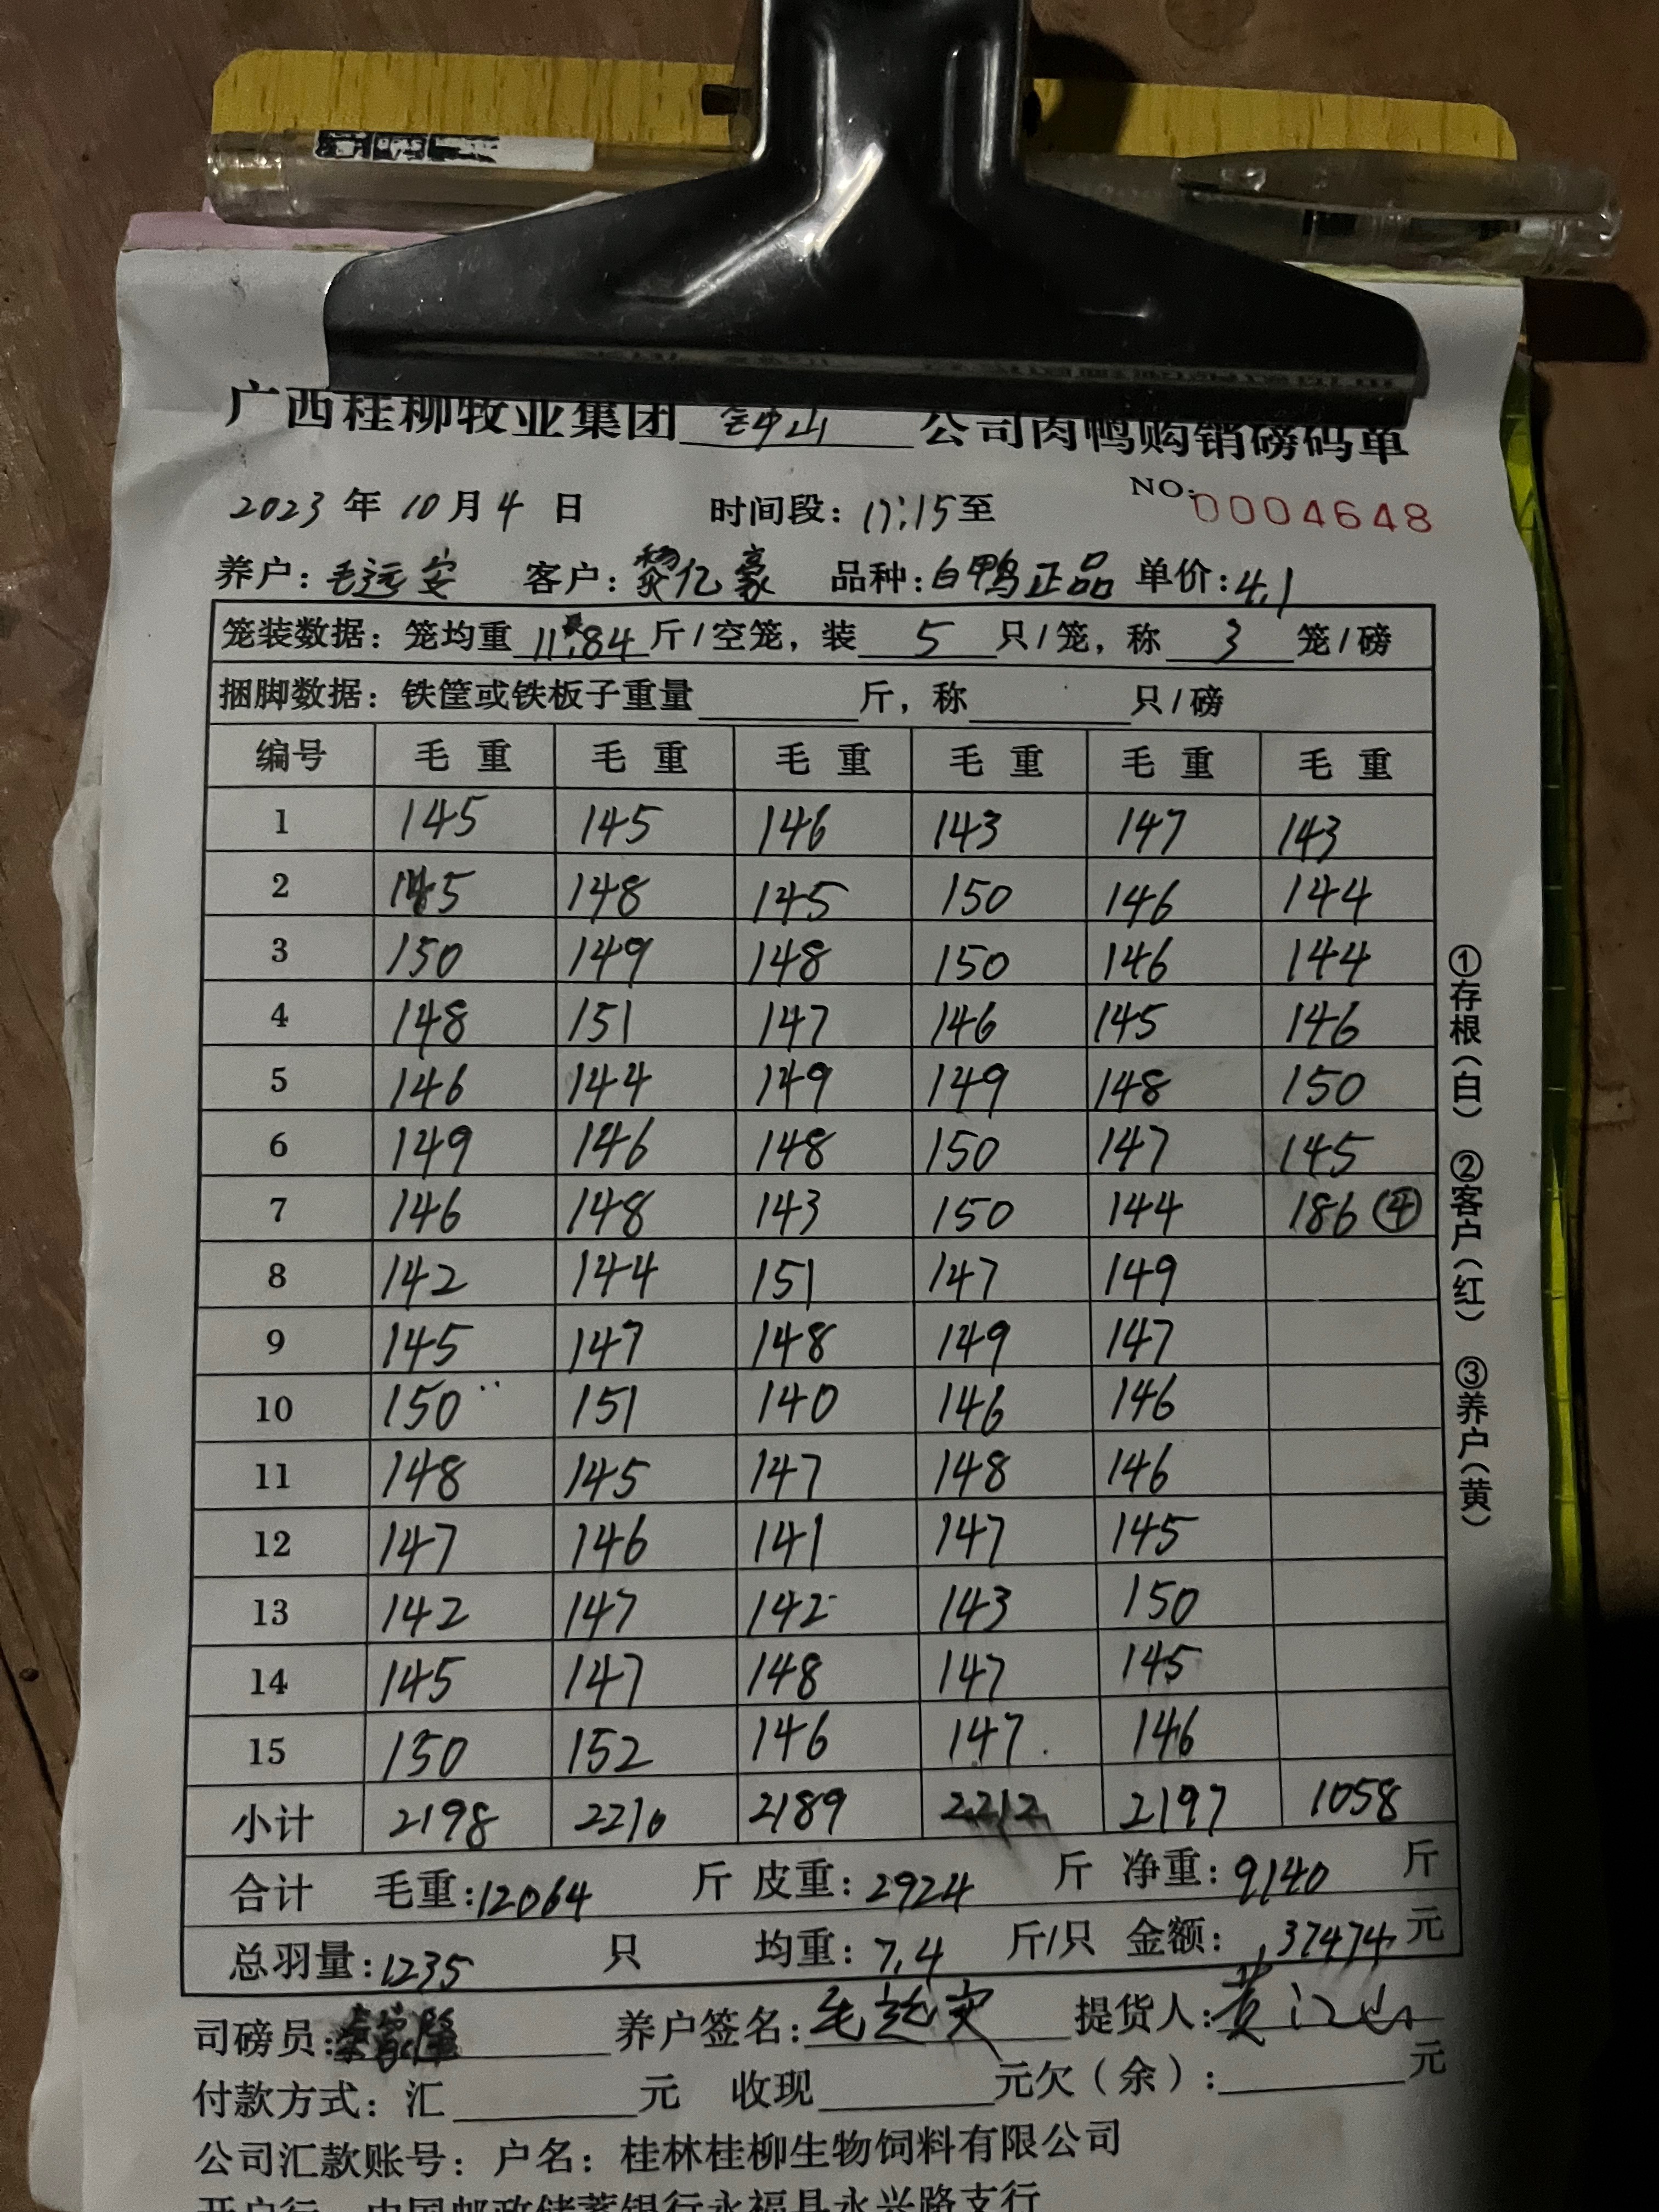 广西桂柳牧业集团 钟山 公司肉鸭购销磅码单
NO:0004648
2023 年 10 月 4 日 时间段:17:15至
养户:毛远安 客户:黎亿豪 品种:白鸭正品 单价:4.1
笼装数据:笼均重 11.84 斤/空笼,装 5 只/笼,称 3 笼/磅
捆脚数据:铁筐或铁板子重量 斤,称 只/磅
编号 毛重 毛重 毛重 毛重 毛重 毛重
1 145 145 146 143 147 143
2 145 148 145 150 146 144
3 150 149 148 150 146 144
4 148 151 147 146 145 146
5 146 144 149 149 148 150
6 149 146 148 150 147 145
7 146 148 143 150 144 186 ④
8 142 144 151 147 149
9 145 147 148 149 147
10 150 151 140 146 146
11 148 145 147 148 146
12 147 146 141 147 145
13 142 147 142 143 150
14 145 147 148 147 145
15 150 152 146 147 146
小计 2198 2210 2189 2212 2197 1058
合计 毛重:12064 斤 皮重:2924 斤 净重:9140 斤
总羽量:1235 只 均重:7.4 斤/只 金额:37474 元
司磅员: 养户签名:毛远安 提货人:黄江山
付款方式:汇 元 收现 元欠(余): 元
公司汇款账号:户名:桂林桂柳生物饲料有限公司
开户行:中国邮政储蓄银行永福县永兴路支行
①存根(白) ②客户(红) ③养户(黄)